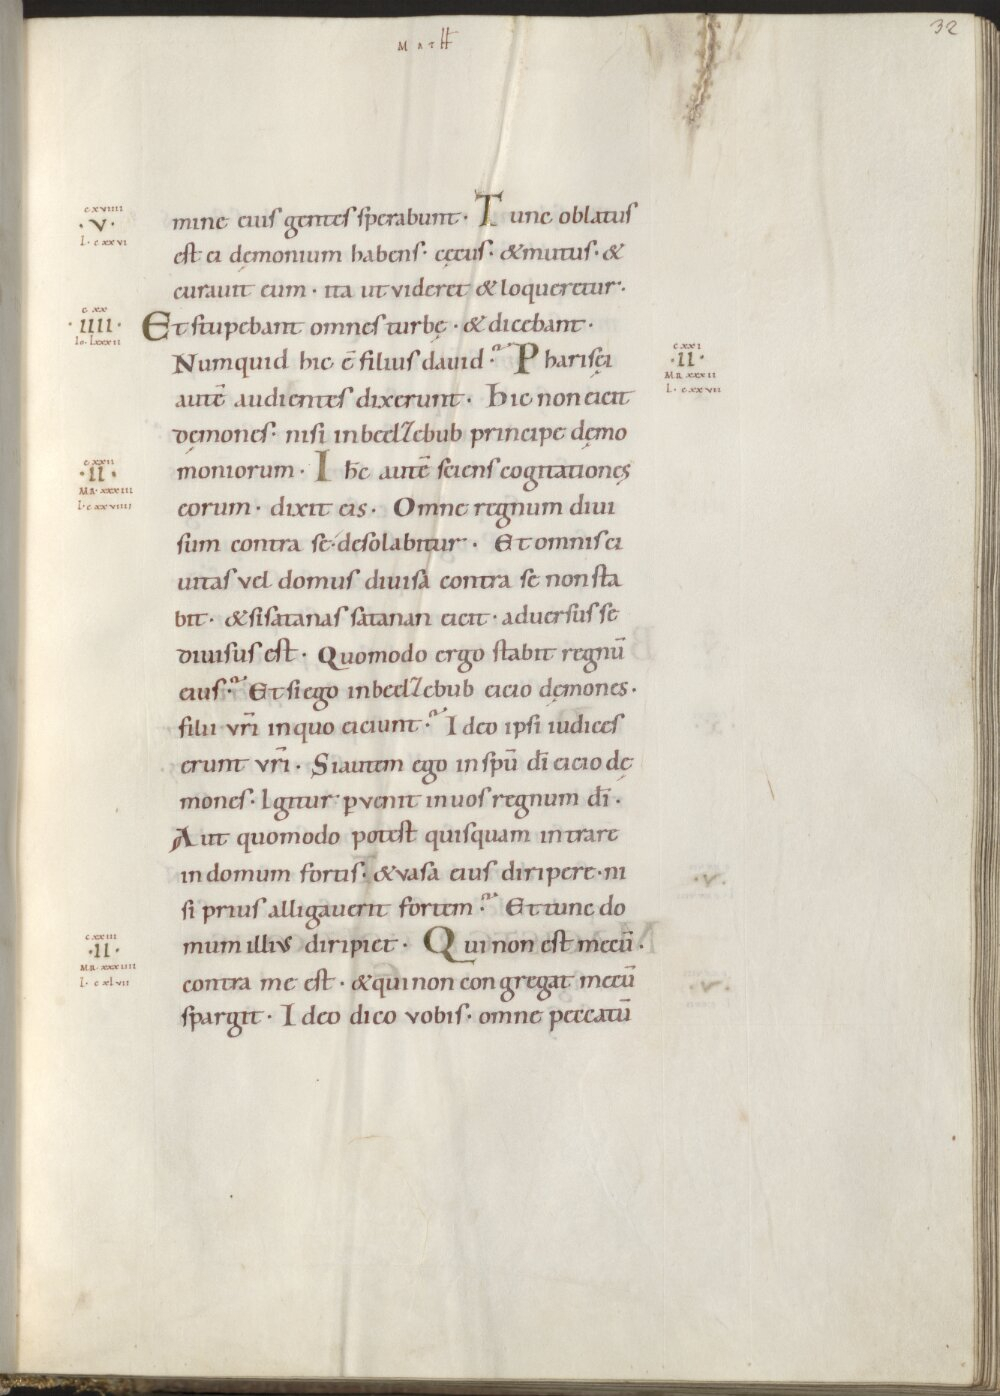 MATH
32
cxviiii
·v·
L·cxxvi
mine eius gentes sperabunt· Tunc oblatus
est ei dęmonium habens· cęcus· & mutus· &
curauit eum· ita ut videret & loqueretur·
cxx
·IIII·
Io·Lxxxii
Et stupebant omnes turbę· & dicebant·
Numquid hic ē filius dauid? Pharisęi
cxxi
·II·
MR xxxii
L·cxxvii
autē audientes dixerunt· Hic non eicit
dęmones· nisi in beelzebub principe dęmo
cxxii
·II·
MR·xxxiii
L·cxxviiii
moniorum· Ihc autē sciens cogitationes
eorum· dixit eis· Omne regnum diui
sum contra se· desolabitur· Et omnis ci
uitas vel domus diuisa contra se non sta
bit· & si satanas satanan eicit· aduersus se
diuisus est· Quomodo ergo stabit regnū
eius? Et si ego in beelzebub eicio dęmones·
filii vr̄i in quo eiciunt? Ideo ipsi iudices
erunt vr̄i· Si autem ego in spū dī eicio dę
mones· Igitur puenit in uos regnum dī·
Aut quomodo potest quisquam intrare
in domum fortis· & vasa eius diripere· ni
si prius alligauerit fortem? Et tunc do
cxxiii
·II·
MR·xxxiiii
L·cxlvii
mum illius diripiet· Qui non est mecū·
contra me est· & qui non congregat mecū
spargit· Ideo dico vobis· omne peccatū